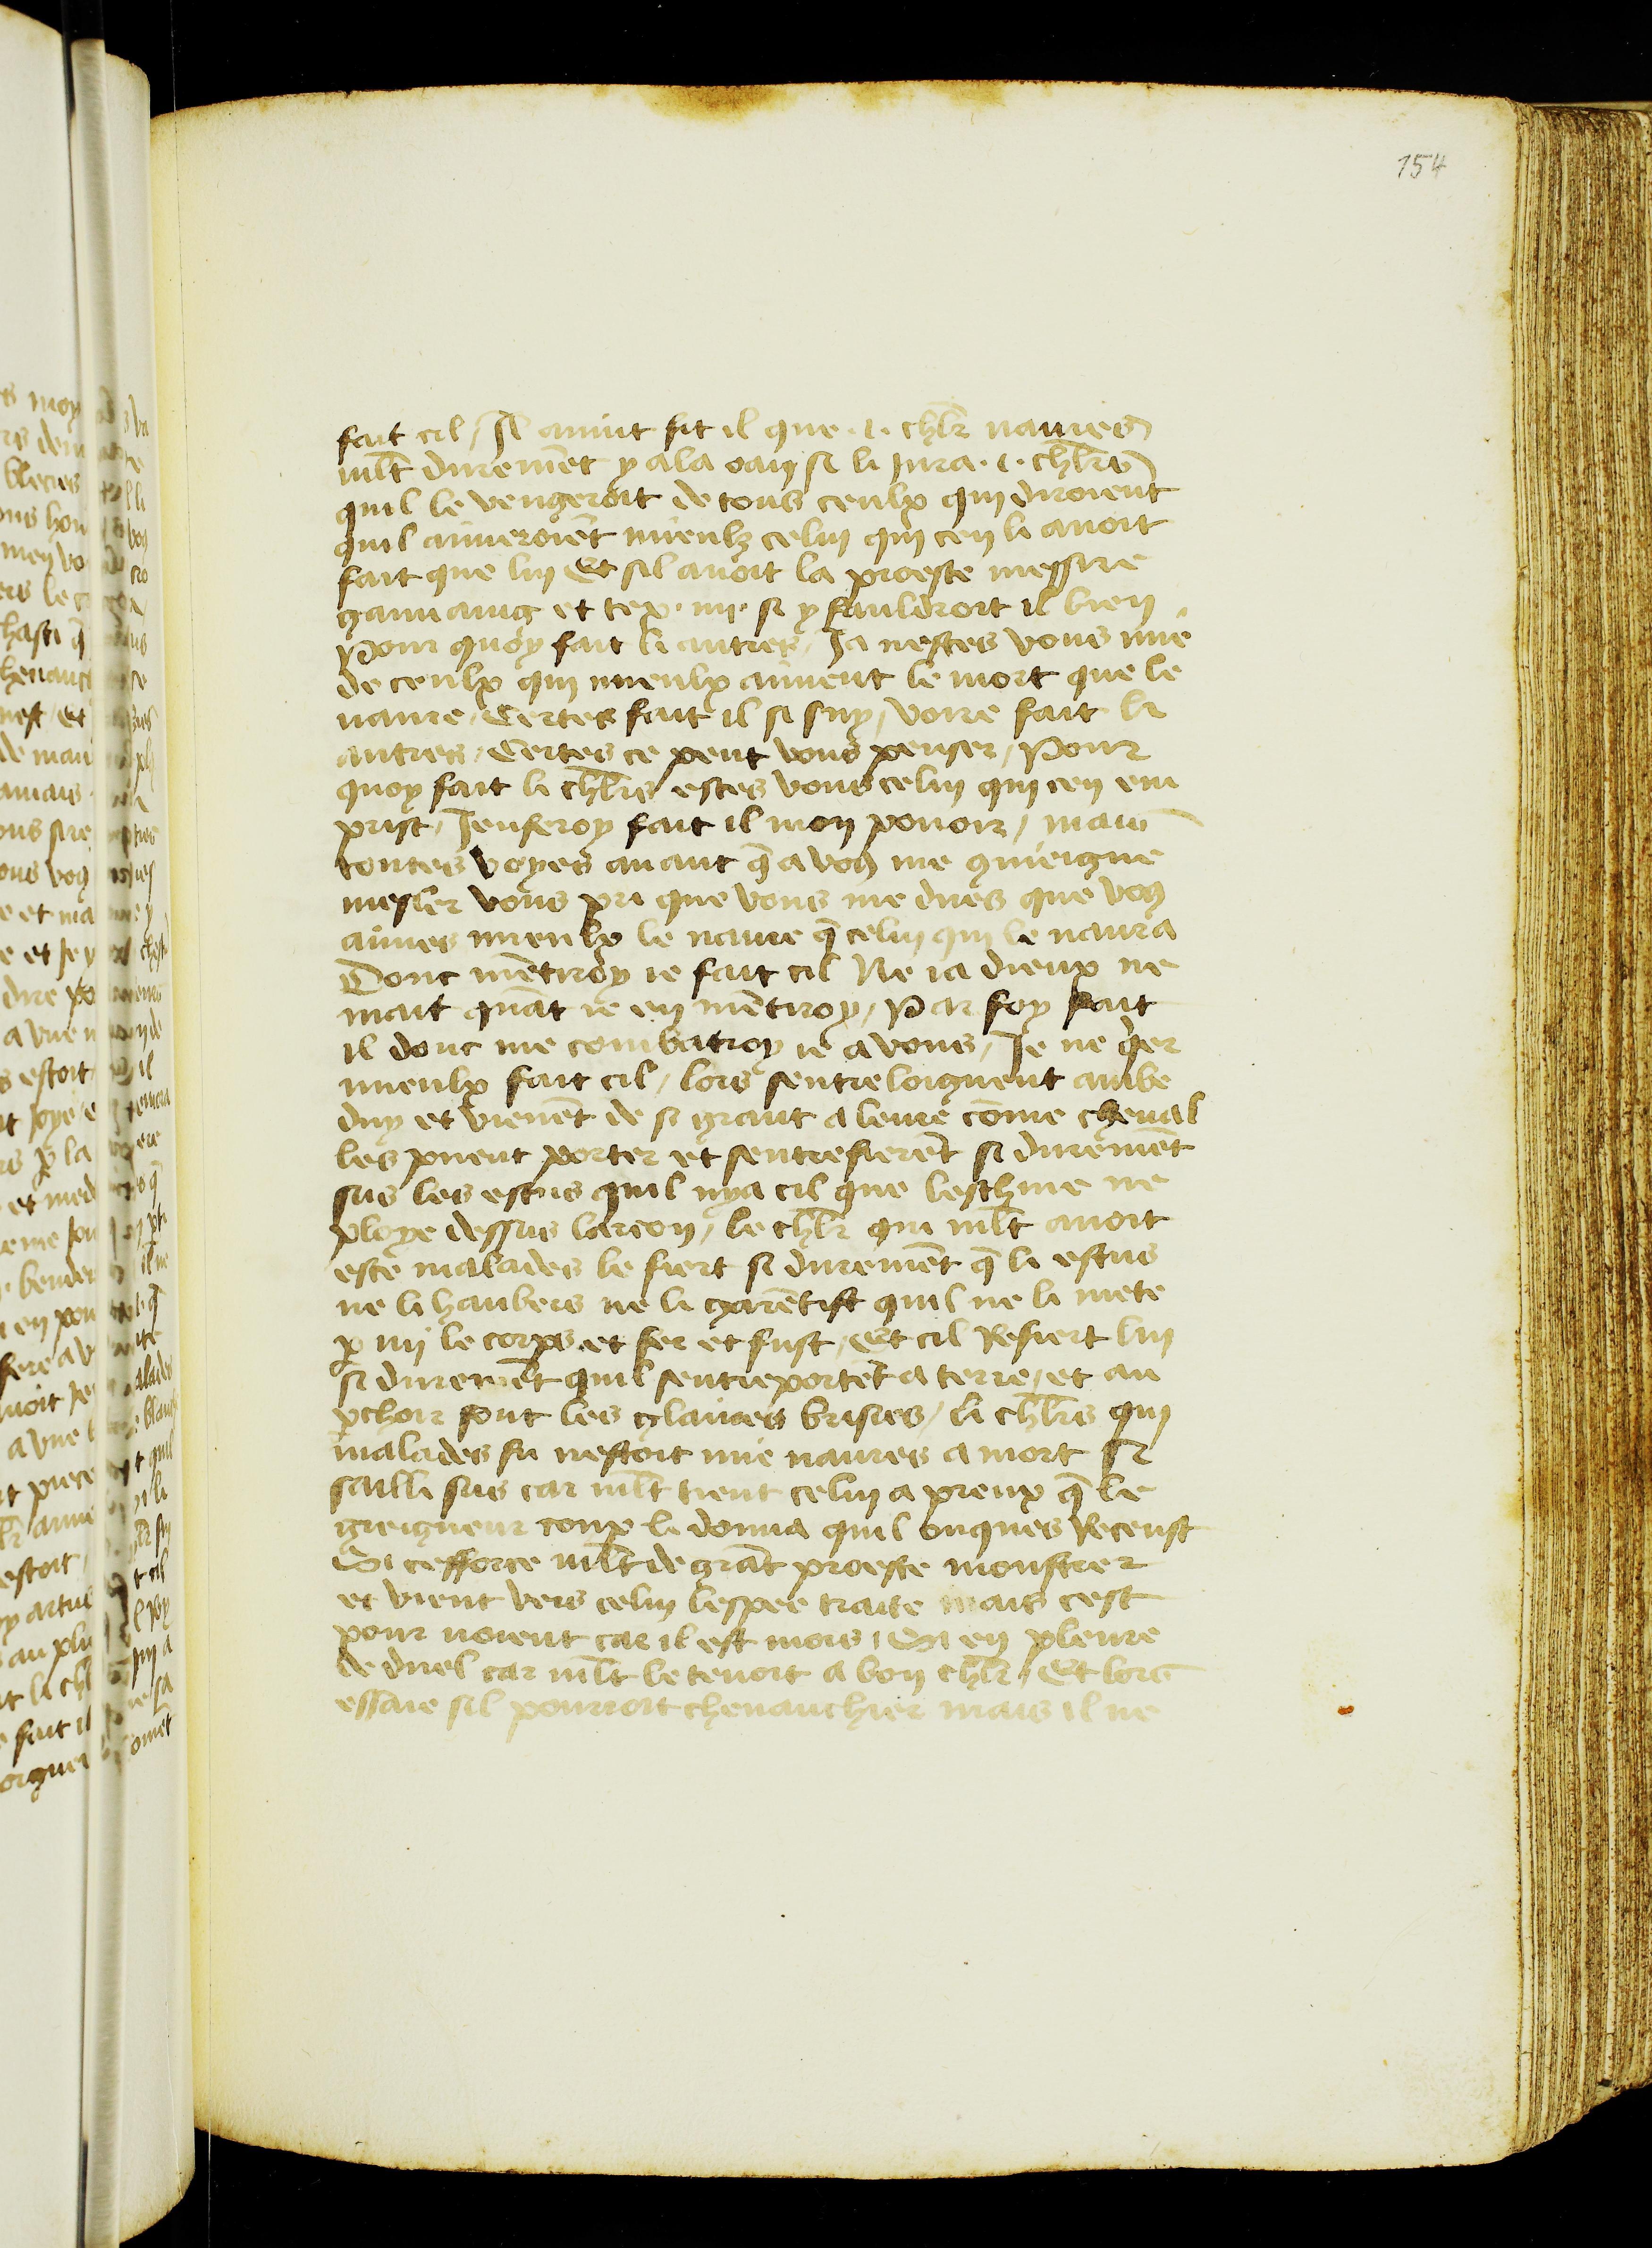 154
fait cil / Il auint fit il que .i. chl̄r naures
ml̄t duremēt y ala oan si li jura .i. chl̄rs
quil le vengeroit de tous ceulx qui diroient
quil aimeroiēt mieulz celui qui cen li auoit
fait que lui Et sil auoit la proeste messire
gauuaing et tex .iiij. si y fauldroit il bien
Pour quoy fait li autres / Ja nestes vous mie
de ceulx qui mieulx aiment le mort que le
naure / Certes fait il si suy / voire fait li
autres / Certes ce peut vous penser / Pour
quoy fait li chl̄rs estes vous celui qui cen em
prist / Jenferoy fait il mon pouoir / mais
toutes voyes auant q̄ a voꝯ me quieigne
mesler vous pri que vous me dites que voꝯ
aimes mieulx le naure q̄ celui qui le naura
Donc mētiroy ie fait cil Ne ia dieux ne
mait quāt ie en mētiroy / Par foy fait
il donc me combatroy ie a vous / Je ne q̄er
mieulx fait cil / lors sentreloignent ambe
duy et vienēt de si grant aleure cōme cheual
les puent porter et sentrefierēt si duremēt
sus les escus quil nya cil que leschine ne
ploye dessus larcon / le chl̄r qui ml̄t auoit
este malades le fiert si duremēt q̄ li escus
ne li haubers ne li garētist quil ne li mete
ꝑ mj le corps et fer et fust / Et cil Refiert lui
si duremēt quil sentreportēt a terre / et au
ꝑchoir sont les glaiues brisies / li chl̄rs qui
malades fu nestoit mie naures a mort si
sailli sus car ml̄t tient celui a preux q̄ le
greigneur coup li donna quil onques Receust
Si cefforce ml̄t de grāt proeste monstrer
et vient vers celui lespee traite mais cest
pour noient car il est mors / Si en pleure
de duel car ml̄t le tenoit a bon chl̄r / Et lors
essaie sil pourroit cheuauchier mais il ne